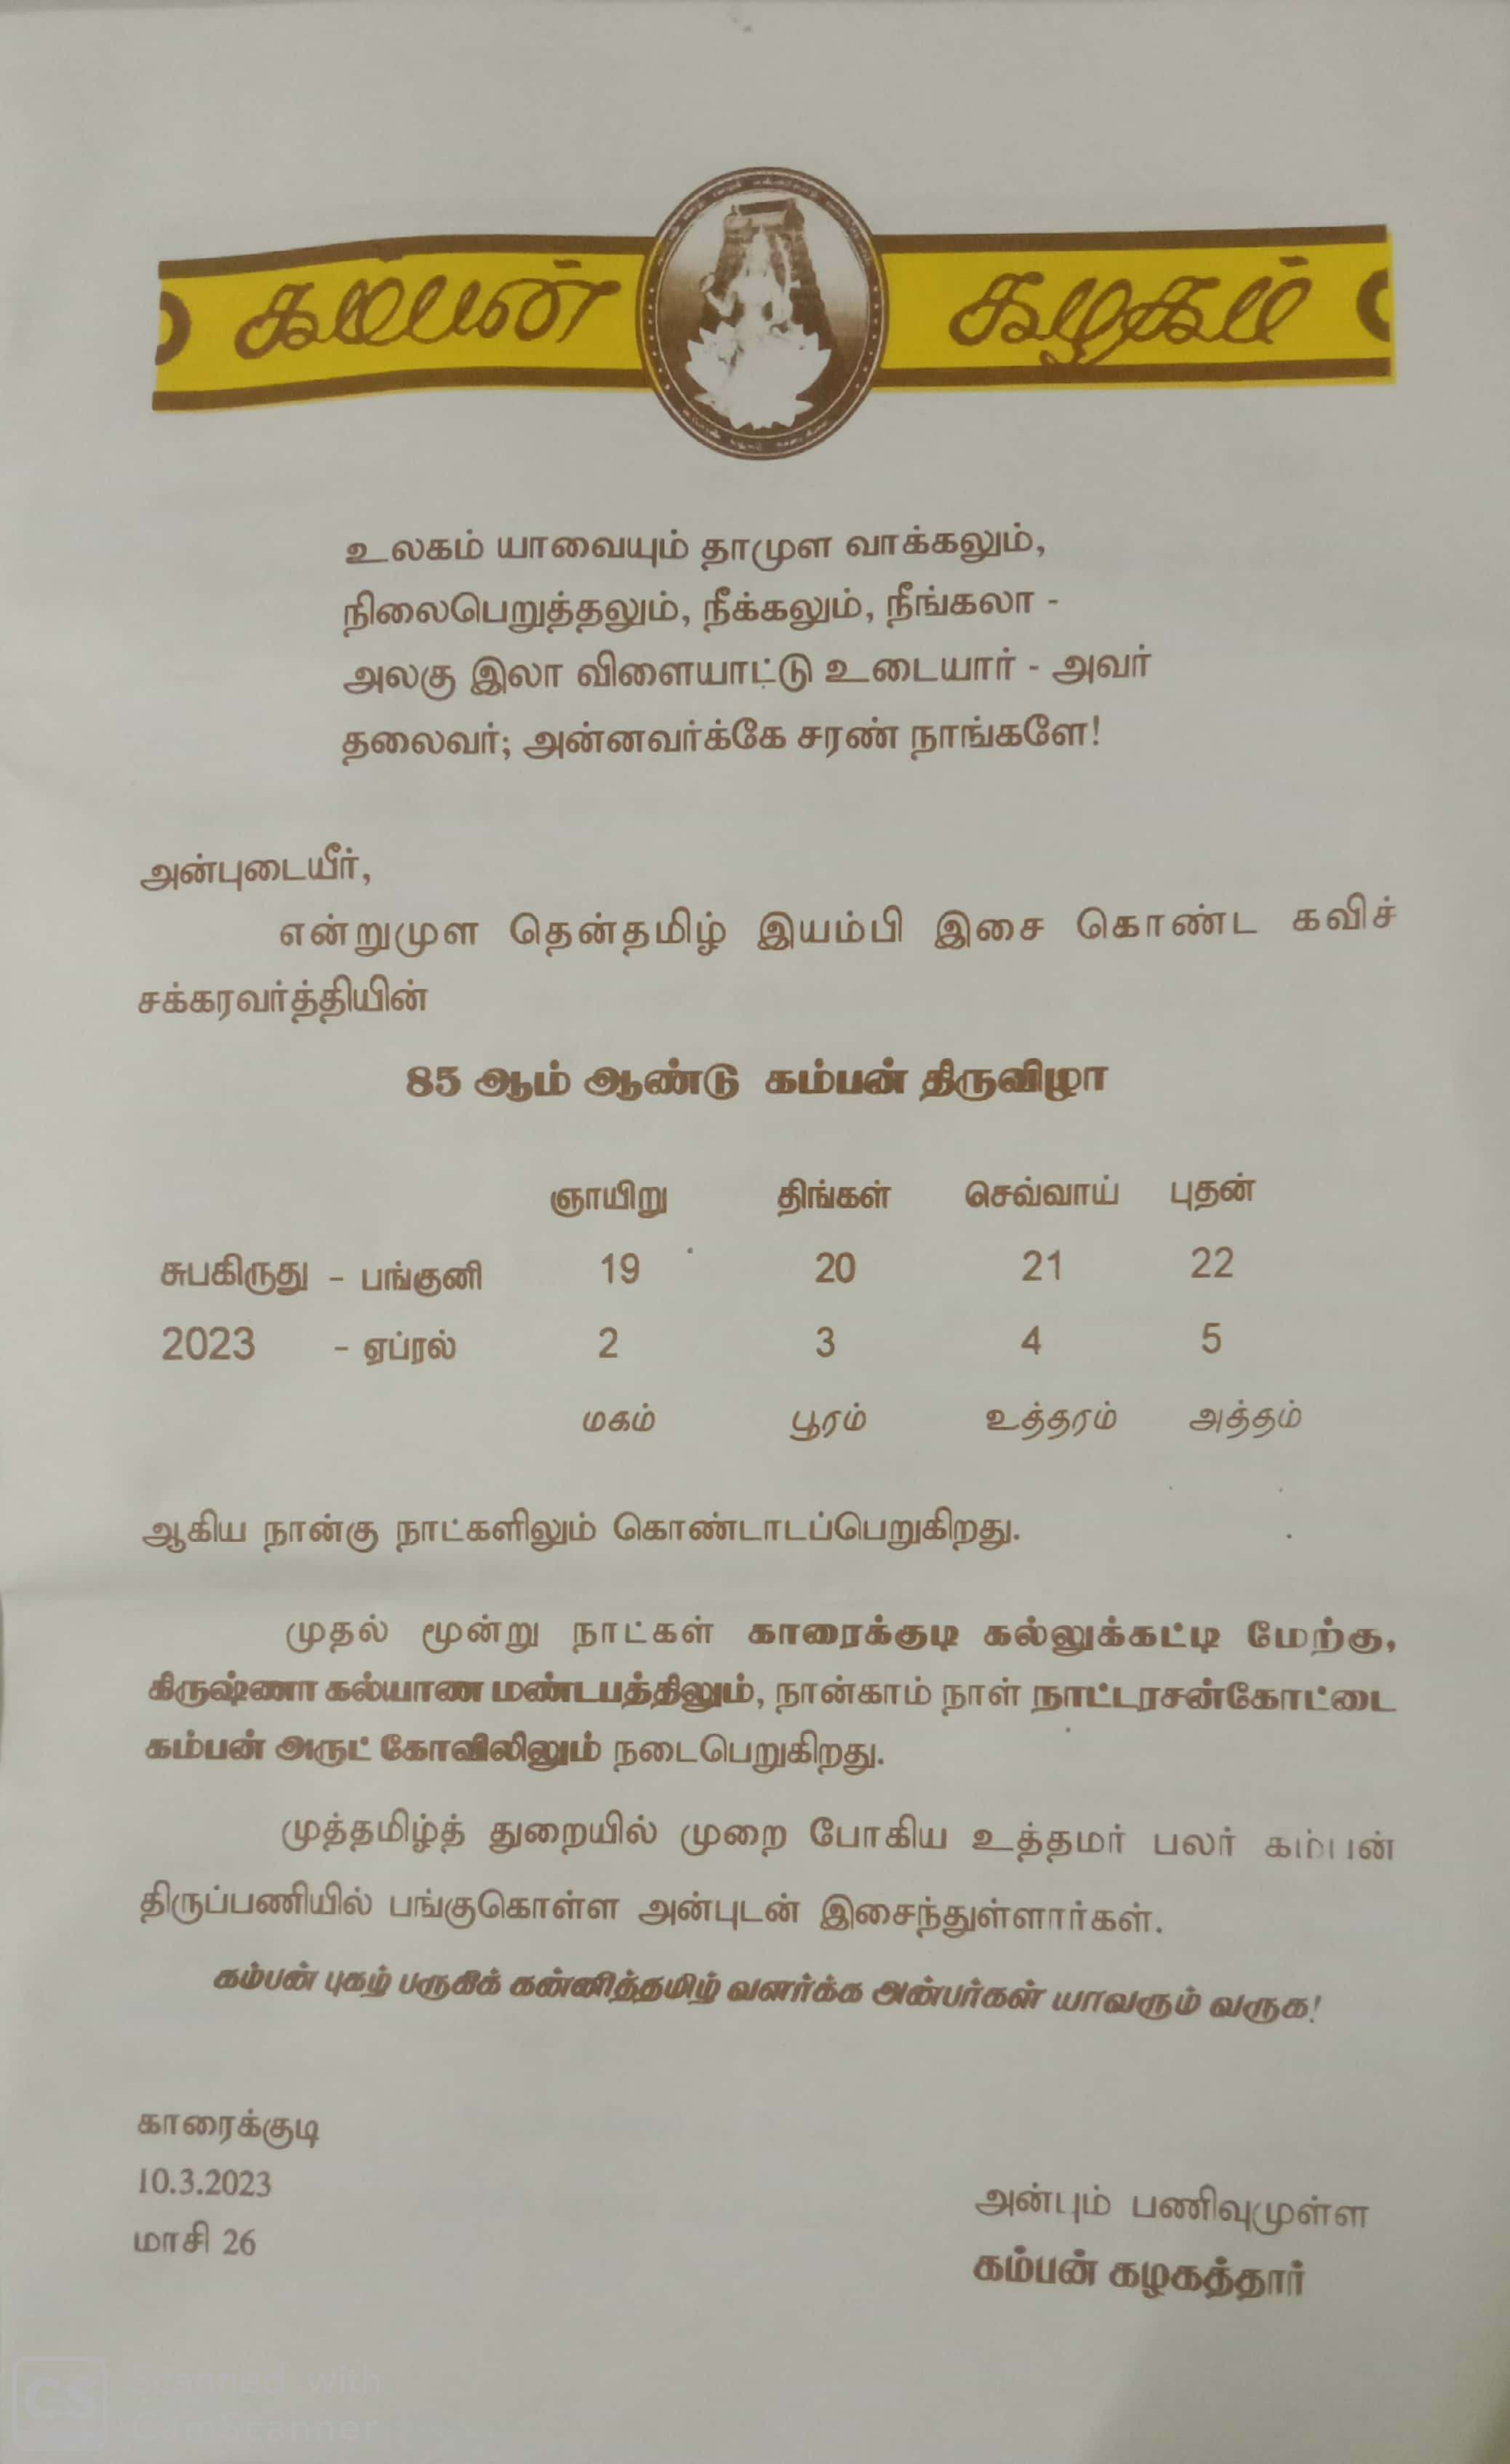 கம்பன் கழகம்
உலகம் யாவையும் தாமுள வாக்கலும்,
நிலைபெறுத்தலும், நீக்கலும், நீங்கலா -
அலகு இலா விளையாட்டு உடையார் - அவர்
தலைவர்; அன்னவர்க்கே சரண் நாங்களே!
அன்புடையீர்,
என்றுமுள தென்தமிழ் இயம்பி இசை கொண்ட கவிச்
சக்கரவர்த்தியின்
85 ஆம் ஆண்டு கம்பன் திருவிழா
ஞாயிறு திங்கள் செவ்வாய் புதன்
சுபகிருது - பங்குனி 19 20 21 22
2023 - ஏப்ரல் 2 3 4 5
மகம் பூரம் உத்தரம் அத்தம்
ஆகிய நான்கு நாட்களிலும் கொண்டாடப்பெறுகிறது.
முதல் மூன்று நாட்கள் காரைக்குடி கல்லுக்கட்டி மேற்கு,
கிருஷ்ணா கல்யாண மண்டபத்திலும், நான்காம் நாள் நாட்டரசன்கோட்டை
கம்பன் அருட் கோவிலிலும் நடைபெறுகிறது.
முத்தமிழ்த் துறையில் முறை போகிய உத்தமர் பலர் கம்பன்
திருப்பணியில் பங்குகொள்ள அன்புடன் இசைந்துள்ளார்கள்.
கம்பன் புகழ் பருகிக் கன்னித்தமிழ் வளர்க்க அன்பர்கள் யாவரும் வருக!
காரைக்குடி
10.3.2023
மாசி 26
அன்பும் பணிவுமுள்ள
கம்பன் கழகத்தார்
CS Scanned with
CamScanner